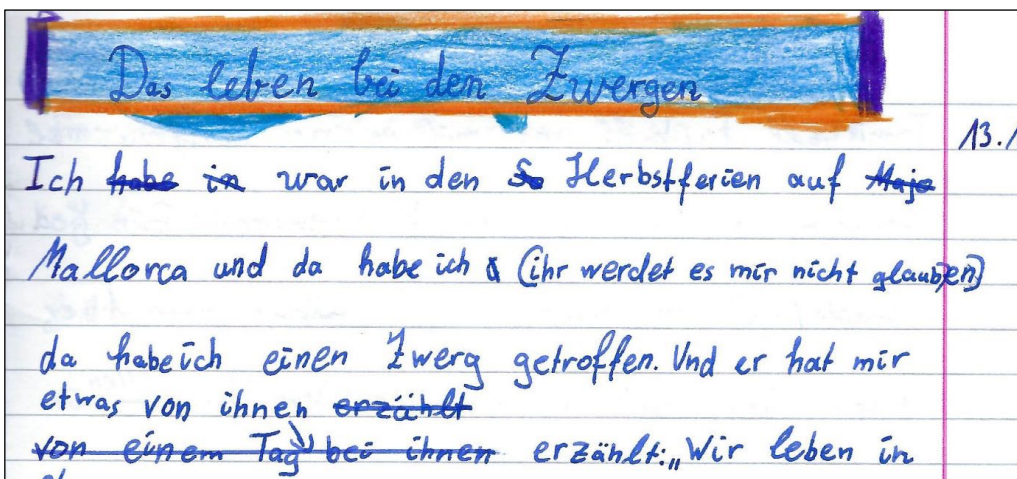 Das leben bei den Zwergen
13.
Ich habe in war in den So Herbstferien auf Majo
Mallorca und da habe ich (ihr werdet es mir nicht glauben)
da habe ich einen Zwerg getroffen. Und er hat mir
etwas von ihnen erzählt
von einem Tag bei ihnen erzählt:„Wir leben in